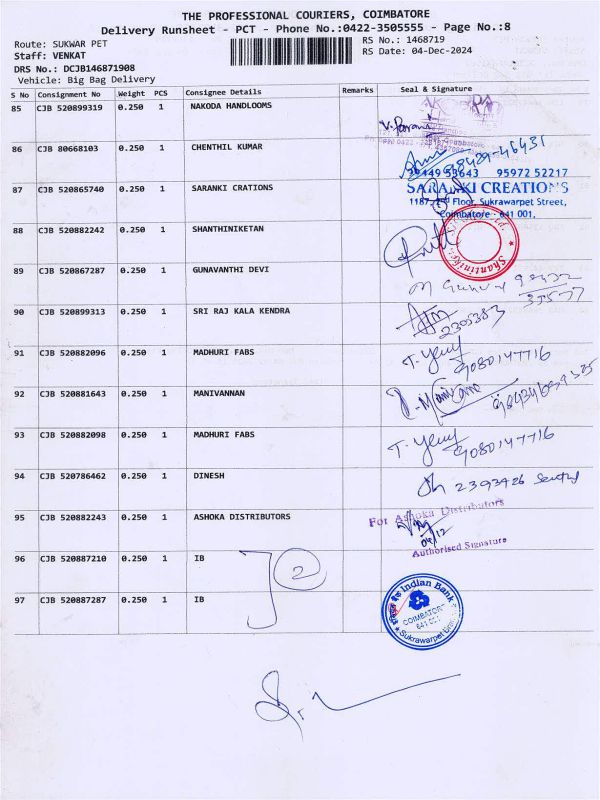 THE PROFESSIONAL COURIERS, COIMBATORE
Delivery Runsheet - PCT - Phone No.:0422-3505555 - Page No.:8
Route: SUKWAR PET RS No.: 1468719
Staff: VENKAT RS Date: 04-Dec-2024
DRS No.: DCJB146871908
Vehicle: Big Bag Delivery
S No Consignment No Weight PCS Consignee Details Remarks Seal & Signature
85 CJB 520899319 0.250 1 NAKODA HANDLOOMS
86 CJB 80668103 0.250 1 CHENTHIL KUMAR
98429-46431
53643 95972 52217
87 CJB 520865740 0.250 1 SARANKI CRATIONS SARANKI CREATIONS
Floor, Sukrawarpet Street,
Coimbatore - 641 001.
88 CJB 520882242 0.250 1 SHANTHINIKETAN Shantiniketan
89 CJB 520867287 0.250 1 GUNAVANTHI DEVI
90 CJB 520899313 0.250 1 SRI RAJ KALA KENDRA 2305383
91 CJB 520882096 0.250 1 MADHURI FABS 9080147716
92 CJB 520881643 0.250 1 MANIVANNAN
93 CJB 520882098 0.250 1 MADHURI FABS 9080147716
94 CJB 520786462 0.250 1 DINESH 2393926
95 CJB 520882243 0.250 1 ASHOKA DISTRIBUTORS For Ashoka Distributors
04/12
Authorised Signature
96 CJB 520887210 0.250 1 IB 2
97 CJB 520887287 0.250 1 IB Indian Bank
COIMBATORE
641 001
Sukrawarpet